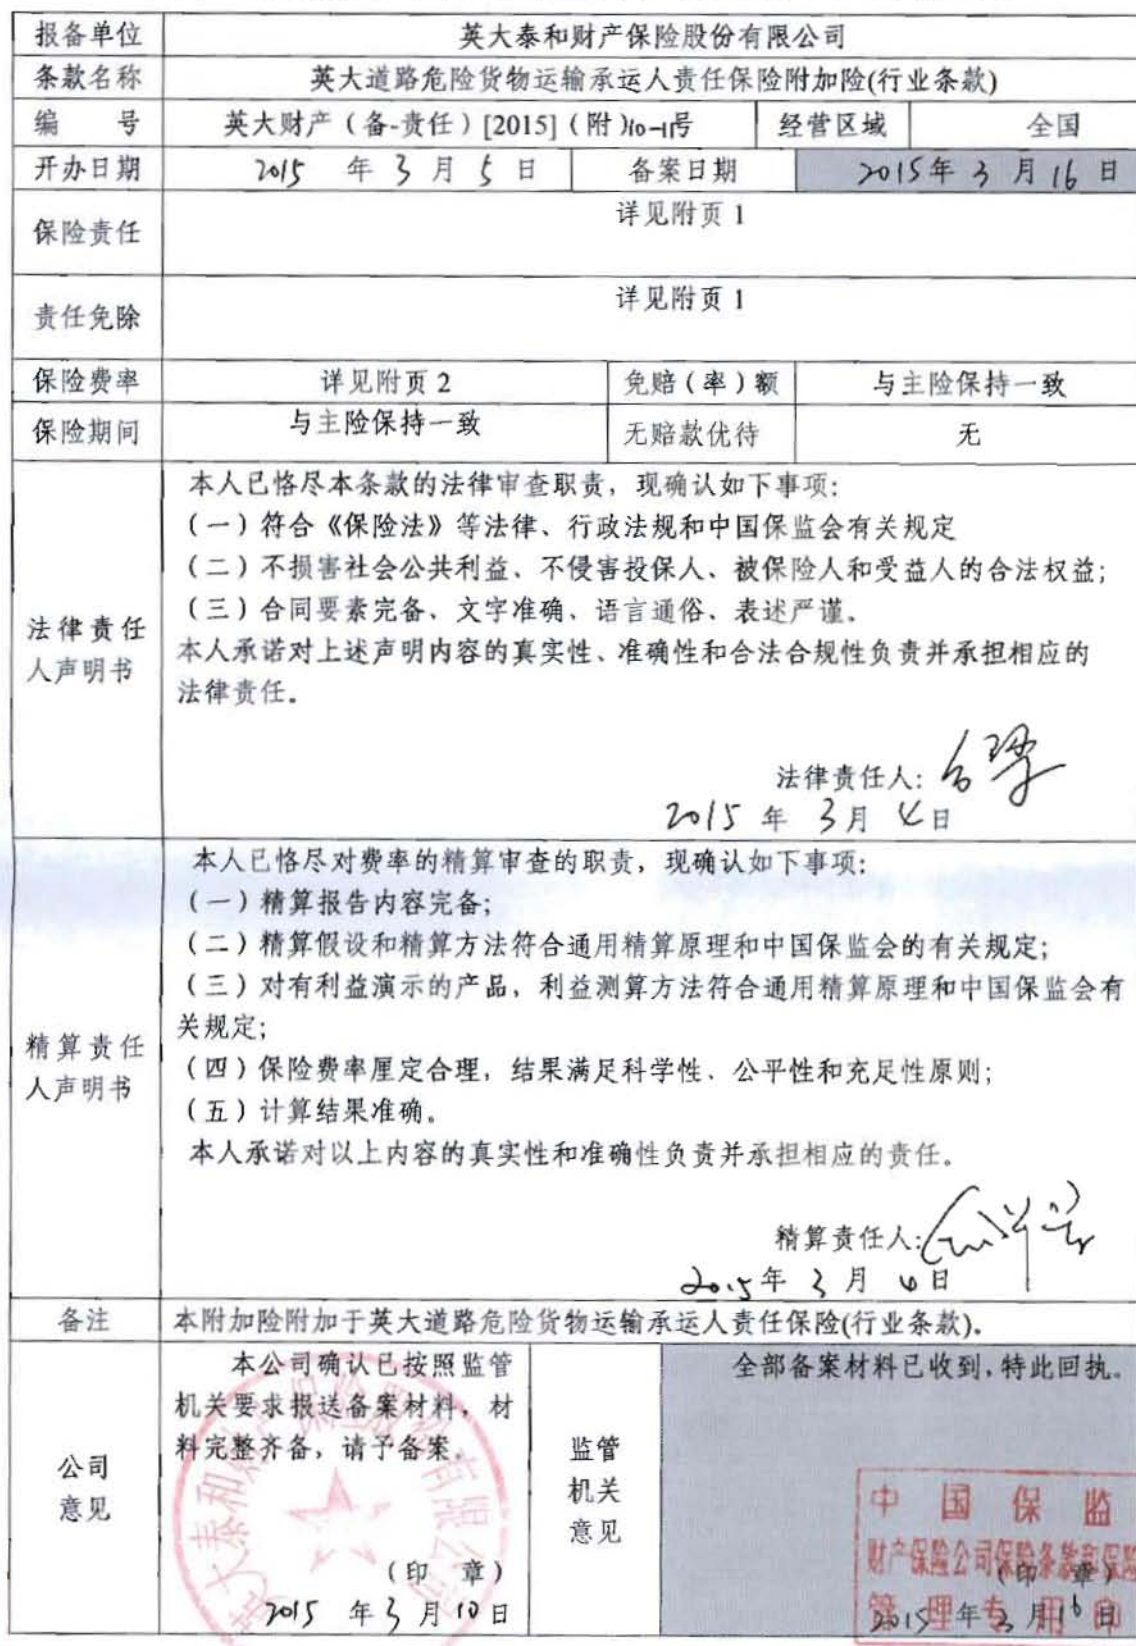 报备单位 英大泰和财产保险股份有限公司
条款名称 英大道路危险货物运输承运人责任保险附加险(行业条款)
编 号 英大财产（备-责任）[2015]（附）10-11号 经营区域 全国
开办日期 2015 年 3 月 5 日 备案日期 2015年 3 月 16 日
保险责任 详见附页 1
责任免除 详见附页 1
保险费率 详见附页 2 免赔（率）额 与主险保持一致
保险期间 与主险保持一致 无赔款优待 无
法律责任
人声明书
本人已恪尽本条款的法律审查职责，现确认如下事项：
（一）符合《保险法》等法律、行政法规和中国保监会有关规定
（二）不损害社会公共利益、不侵害投保人、被保险人和受益人的合法权益；
（三）合同要素完备、文字准确、语言通俗、表述严谨。
本人承诺对上述声明内容的真实性、准确性和合法合规性负责并承担相应的
法律责任。
法律责任人：
2015 年 3月 4日
精算责任
人声明书
本人已恪尽对费率的精算审查的职责，现确认如下事项：
（一）精算报告内容完备；
（二）精算假设和精算方法符合通用精算原理和中国保监会的有关规定；
（三）对有利益演示的产品，利益测算方法符合通用精算原理和中国保监会有
关规定；
（四）保险费率厘定合理，结果满足科学性、公平性和充足性原则；
（五）计算结果准确。
本人承诺对以上内容的真实性和准确性负责并承担相应的责任。
精算责任人：
2015年 3 月 4日
备注 本附加险附加于英大道路危险货物运输承运人责任保险(行业条款)。
公司
意见
本公司确认已按照监管
机关要求报送备案材料，材
料完整齐备，请予备案。
（印 章）
2015 年 3 月 10 日
英大泰和财产保险股份有限公司
监管
机关
意见
全部备案材料已收到,特此回执。
中国保监
财产保险公司保险条款和保险
管理专用章
（印 章）
2015 年 3 月 16 日